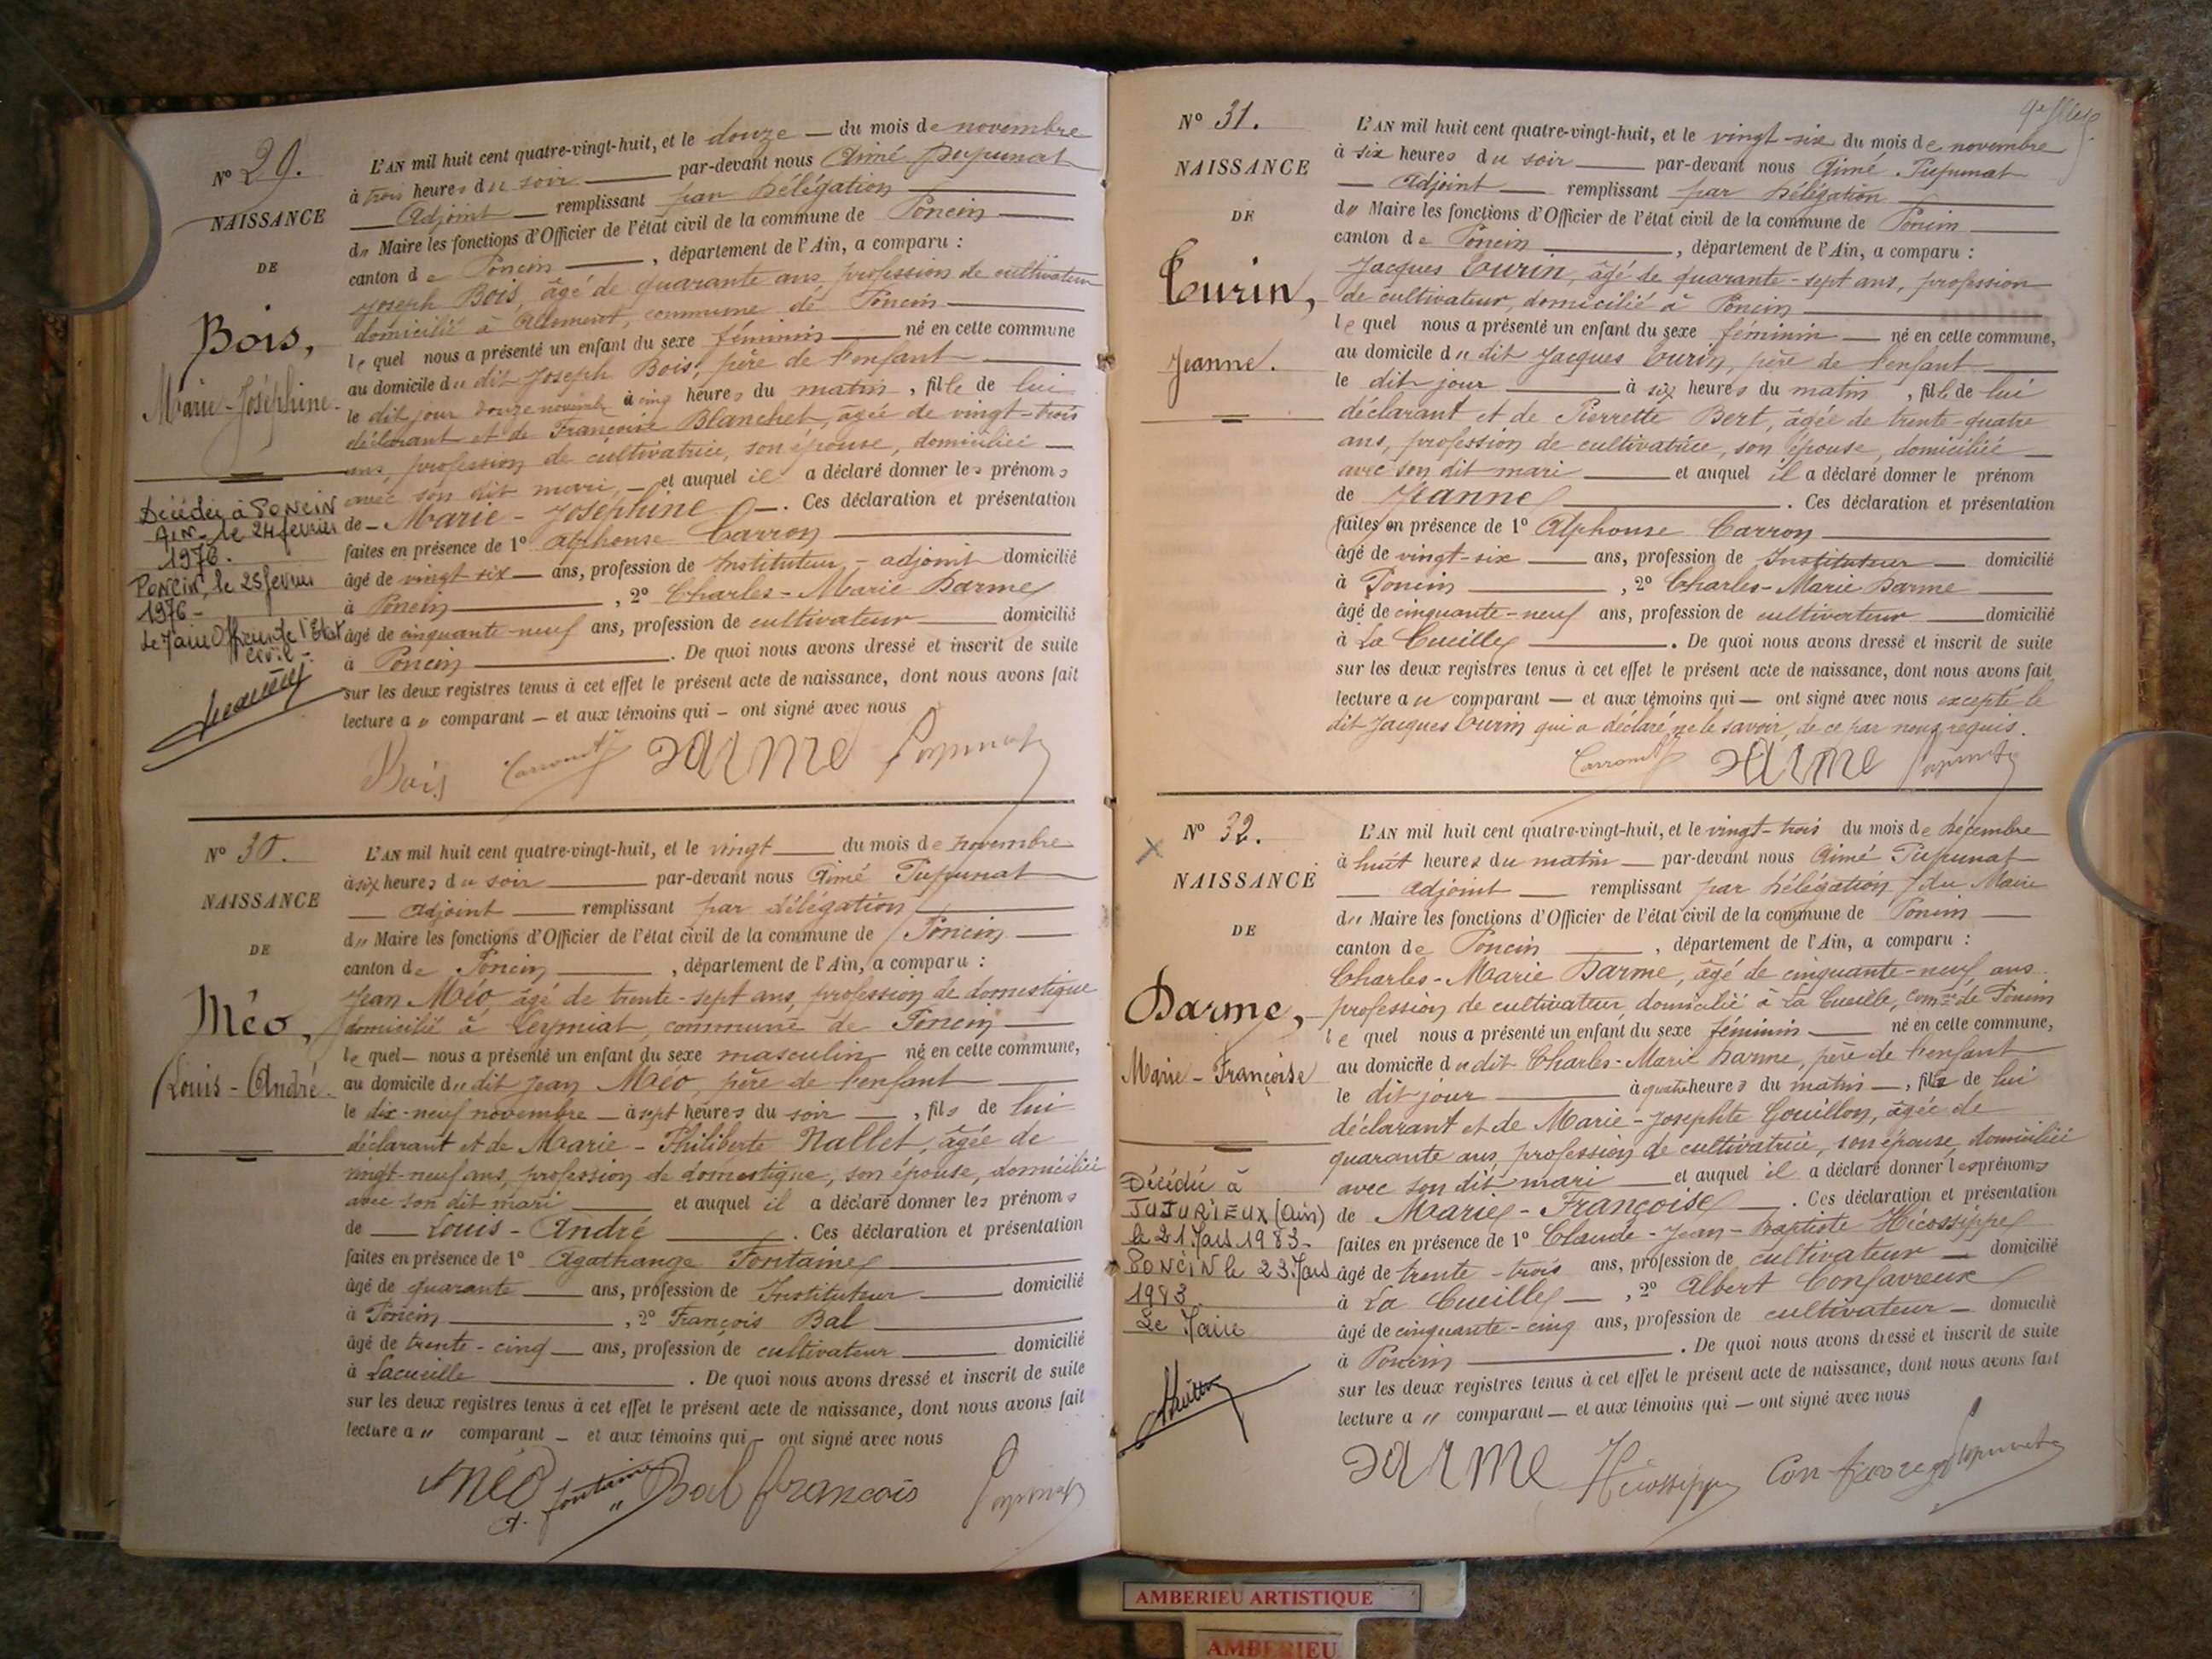 N° 29.
NAISSANCE
DE
Bois,
Marie-Joséphine.
Décédée à PONCIN
AIN - le 24 février
1976.
PONCIN, le 25 février
1976 -
Le Maire Officier de l'Etat
civil -
L'AN mil huit cent quatre-vingt-huit, et le douze — du mois de novembre
à trois heures du soir — par-devant nous Aimé Pupunat
— Adjoint — remplissant par délégation —
du Maire les fonctions d'Officier de l'état civil de la commune de Poncin —
canton de Poncin —, département de l'Ain, a comparu :
Joseph Bois, âgé de quarante ans, profession de cultivateur
domicilié à Allement, commune de Poncin —
le quel nous a présenté un enfant du sexe féminin — né en cette commune
au domicile du dit Joseph Bois, père de l'enfant —
le dit jour douze novembre à cinq heures du matin, fille de lui
déclarant et de Françoise Blanchet, âgée de vingt-trois
ans, profession de cultivatrice, son épouse, domiciliée —
avec son dit mari, — et auquel il a déclaré donner les prénoms
de — Marie - Joséphine —. Ces déclaration et présentation
faites en présence de 1° Alphonse Carron —
âgé de vingt six — ans, profession de Instituteur - adjoint domicilié
à Poncin —, 2° Charles - Marie Darme
âgé de cinquante-neuf ans, profession de cultivateur — domicilié
à Poncin —. De quoi nous avons dressé et inscrit de suite
sur les deux registres tenus à cet effet le présent acte de naissance, dont nous avons fait
lecture a u comparant — et aux témoins qui — ont signé avec nous
Bois Carron Darme Pupunat
N° 30.
NAISSANCE
DE
Méo,
Louis - André.
L'AN mil huit cent quatre-vingt-huit, et le vingt — du mois de novembre
à six heures du soir — par-devant nous Aimé Pupunat
— Adjoint — remplissant par délégation —
du Maire les fonctions d'Officier de l'état civil de la commune de Poncin —
canton de Poncin —, département de l'Ain, a comparu :
Jean Méo, âgé de trente-sept ans, profession de domestique
domicilié à Leymiat, commune de Poncin —
le quel — nous a présenté un enfant du sexe masculin né en cette commune,
au domicile du dit Jean Méo, père de l'enfant —
le dix-neuf novembre — à sept heures du soir —, fils de lui
déclarant et de Marie - Philiberte Nallet, âgée de
vingt-neuf ans, profession de domestique, son épouse, domiciliée
avec son dit mari — et auquel il a déclaré donner les prénoms
de — Louis - André —. Ces déclaration et présentation
faites en présence de 1° Agathange Fontaine —
âgé de quarante — ans, profession de Instituteur — domicilié
à Poncin —, 2° François Bal —
âgé de trente - cinq — ans, profession de cultivateur — domicilié
à Lacueille —. De quoi nous avons dressé et inscrit de suite
sur les deux registres tenus à cet effet le présent acte de naissance, dont nous avons fait
lecture a u comparant — et aux témoins qui — ont signé avec nous
Méo A. fontaine Bal françois Pupunat
N° 31.
NAISSANCE
DE
Turin,
Jeanne.
L'AN mil huit cent quatre-vingt-huit, et le vingt-six du mois de novembre
à six heures du soir — par-devant nous Aimé Pupunat
— Adjoint — remplissant par délégation —
du Maire les fonctions d'Officier de l'état civil de la commune de Poncin —
canton de Poncin —, département de l'Ain, a comparu :
Jacques Turin, âgé de quarante-sept ans, profession
de cultivateur, domicilié à Poncin —
le quel nous a présenté un enfant du sexe féminin — né en cette commune,
au domicile du dit Jacques Turin, père de l'enfant —
le dit jour — à six heures du matin, fille de lui
déclarant et de Pierrette Bert, âgée de trente-quatre
ans, profession de cultivatrice, son épouse, domiciliée —
avec son dit mari — et auquel il a déclaré donner le prénom
de Jeanne —. Ces déclaration et présentation
faites en présence de 1° Alphonse Carron —
âgé de vingt-six — ans, profession de Instituteur — domicilié
à Poncin —, 2° Charles-Marie Darme —
âgé de cinquante-neuf ans, profession de cultivateur — domicilié
à La Cueille —. De quoi nous avons dressé et inscrit de suite
sur les deux registres tenus à cet effet le présent acte de naissance, dont nous avons fait
lecture a u comparant — et aux témoins qui — ont signé avec nous excepté le
dit Jacques Turin qui a déclaré ne le savoir, de ce par nous requis.
Carron Darme Pupunat
N° 32.
NAISSANCE
DE
Darme,
Marie - Françoise
Décédée à
JUJURIEUX (Ain)
le 21 Mars 1983 -
PONCIN le 23 Mars
1983
Le Maire
L'AN mil huit cent quatre-vingt-huit, et le vingt-trois du mois de décembre
à huit heures du matin — par-devant nous Aimé Pupunat
— adjoint — remplissant par délégation du Maire
du Maire les fonctions d'Officier de l'état civil de la commune de Poncin —
canton de Poncin —, département de l'Ain, a comparu :
Charles-Marie Darme, âgé de cinquante-neuf ans
profession de cultivateur, domicilié à La Cueille, comne de Poncin
le quel nous a présenté un enfant du sexe féminin — né en cette commune,
au domicile du dit Charles-Marie Darme, père de l'enfant
le dit jour — à quatre heures du matin —, fille de lui
déclarant et de Marie-Josephte Gouillon, âgée de
quarante ans, profession de cultivatrice, son épouse, domiciliée
avec son dit mari — et auquel il a déclaré donner les prénoms
de Marie - Françoise —. Ces déclaration et présentation
faites en présence de 1° Claude - Jean - Baptiste Hécossippe
âgé de trente - trois ans, profession de cultivateur — domicilié
à La Cueille —, 2° Albert Confavreux
âgé de cinquante-cinq ans, profession de cultivateur — domicilié
à Poncin —. De quoi nous avons dressé et inscrit de suite
sur les deux registres tenus à cet effet le présent acte de naissance, dont nous avons fait
lecture a u comparant — et aux témoins qui — ont signé avec nous
Darme Hécossippe Confavreux Pupunat
AMBERIEU ARTISTIQUE
AMBERIEU